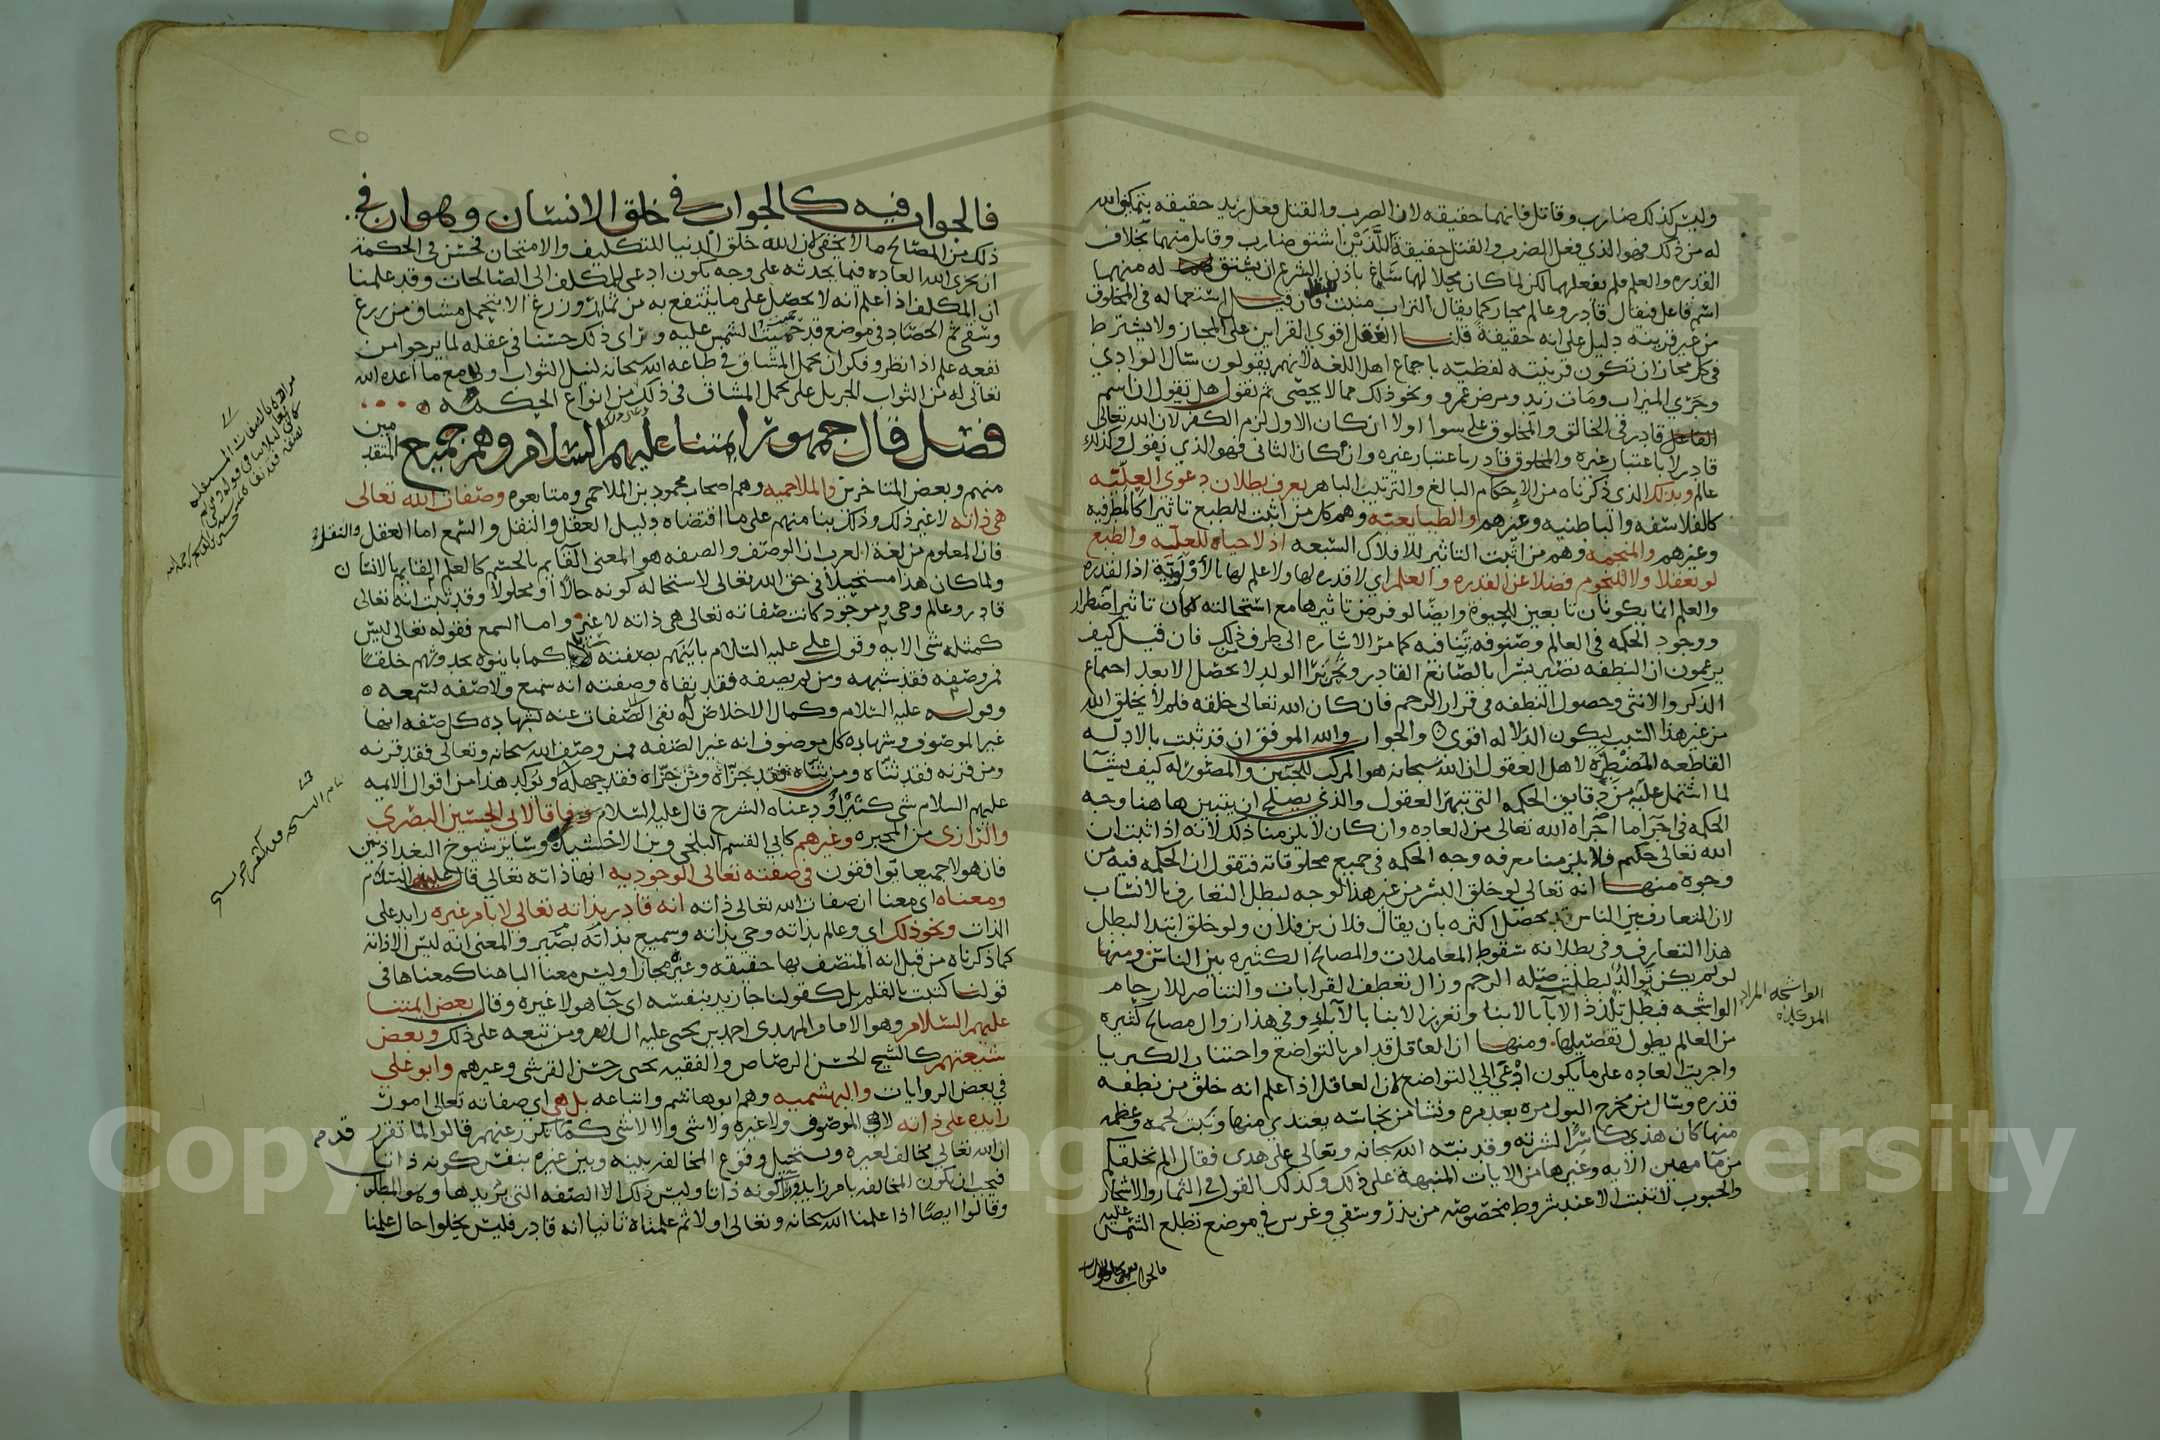 وليس كذلك ضارب وقاتل فانهما حقيقه لان الضرب والقتل فعل زيد حقيقه بتمكين الله
له من ذلك فهو الذي فعل الضرب والقتل حقيقة اللذين اشتق ضارب وقاتل منهما بخلاف
القدره والعلم فلم يفعلهما لكن لما كان محلا لهما ساغ باذن الشرع ان يشتق له منهما
اسم فاعل فيقال قادر وعالم مجاز كما يقال التراب منبت فان قيل استعماله في المخلوق
من غير قرينه دليل على انه حقيقة قلنا العقل اقوى القراين على المجاز ولا يشترط
في كل مجاز ان تكون قرينته لفظيه باجماع اهل اللغه لانهم يقولون سال الوادي
وجرى الميزاب ومات زيد ومرض عمرو ونحو ذلك مما لا يحصى ثم نقول هل تقول ان اسم
القاعل قادر في الخالق والمخلوق على سوا اولا ان كان الاول لزم الكفر لان الله تعالى
قادر لا باعتبار غيره والمخلوق قادر باعتبار غيره وان كان الثاني فهو الذي نقول وكذلك
عالم وبذلك الذي ذكرناه من الاحكام البالغ والترتيب الباهر يعرف بطلان دعوى العليه
كالفلاسفه والباطنيه وغيرهم والطبايعيه وهم كل من اثبت للطبع تاثيرا كالمطرفيه
وغيرهم والمنجمه وهم من اثبت التاثير للافلاك السبعه اذ لا حياه للعليه والطبع
لو تعقلا ولا للنجوم فضلا عن القدره والعلم اي لا قدره لها ولا علم لها بالاولويه اذ القدره
والعلم انما يكونان تابعين للحيوه وايضا لو فرض تاثيرها مع استحالته لكان تاثير اضطرار
ووجود الحكمه في العالم وصنوفه تنافيه كما مر الاشاره الى طرف ذلك فان قيل كيف
يزعمون ان النطفه تصير بشرا بالصانع القادر ونحن نرا الولد لا يحصل الا بعد اجماع
الذكر والانثى وحصول النطفه في قرار الرحم فان كان الله تعالى خلقه فلم لا يخلق الله
من غير هذا السبب ليكون الدلاله اقوى والجواب والله الموفق ان قد ثبت بالادله
القاطعه المضطره لاهل العقول ان الله سبحانه هو المركب للجنين والمصور له كيف يشا
لما اشتمل عليه من دقايق الحكمه التي تبهر العقول والذي يصلح ان يتبين ها هنا وجه
الحكمه في اجرا ما اجراه الله تعالى من العاده وان كان لا يلزمنا ذلك لانه اذا ثبت ان
الله تعالى حكيم فلا يلزمنا معرفه وجه الحكمه في جميع مخلوقاته فنقول ان الحكمه فيه من
وجوه منها انه تعالى لو خلق البشر من غير هذا الوجه لبطل التعارف بالانساب
لان التعارف بين الناس يحصل اكثره بان يقال فلان بن فلان ولو خلق ابتدا لبطل
هذا التعارف وفي بطلانه سقوط المعاملات والمصالح الكثيره بين الناس ومنها
لو لم يكن توالد لبطلت صله الرحم وزال تعطف القرابات والتناصر للارحام
الواشجه فبطل تلذذ الآبا بالابنا وتعزيز الابنا بالآبا وفي هذا زوال مصالح كثيره
من العالم يطول تفصيلها ومنها ان العاقل قد امر بالتواضع واجتناب الكبريا
واجريت العاده على ما يكون ادعى الى التواضع لان العاقل اذا علم انه خلق من نطفه
قذره وسال من مخرج البول مره بعد مره ونشا من نجاسه يغتذي منها ونبت لحمه وعظمه
منها كان هذي كاسرا لشرته وقد نبه الله سبحانه وتعالى على هدى فقال الم نخلقكم
من ما مهين الايه وغيرها من الايات المنبهة على ذلك وكذلك القول في الثمار والاشجار
والحبوب لا تنبت الا عند شروط مخصوصه من بذر وسقي وغرس في موضع تطلع الشمس عليه
فالجواب
الواشجه المراد
الموكده
فالجواب فيه كالجواب في خلق الانسان وهو ان في
ذلك من المصالح ما لا يخفى ان الله خلق الدنيا للتكليف والامتحان فحسن في الحكمة
ان يجري الله العاده فيما يحدثه على وجه يكون ادعى للمكلف الى الصالحات وقد علمنا
ان المكلف اذا علم انه لا يحصل على ما ينتفع به من ثمار وزرع الا بتحمل مشاق من زرع
وسقي ثم الحصاد في موضع قد حميت الشمس عليه وراى ذلك حسنا في عقله لما يرجوا من
نفعه علم اذا نظر وفكر ان تحمل المشاق في طاعه الله سبحانه لنيل الثواب اولى مع ما اعده الله
تعالى له من الثواب الجزيل على تحمل المشاق في ذلك من انواع الحكمه
فصل قال جمهور ايمتنا عليهم السلام وهم جميع المتقدمين
منهم وبعض المتاخرين والملاحميه وهم اصحاب محمود بن الملاحمي ومتابعوه وصفات الله تعالى
هي ذاته لا غير ذلك وذلك بنا منهم على ما اقتضاه دليل العقل والنقل والسمع اما العقل والنقل
فان المعلوم من لغة العرب ان الوصف والصفه هو المعنى القايم بالجسم كالعلم القايم بالانسان
ولما كان هذا مستحيلا في حق الله تعالى لاستحالة كونه حالا او محلولا وقد ثبت انه تعالى
قادر وعالم وحي وموجود كانت صفاته تعالى هي ذاته لا غير واما السمع فقوله تعالى ليس
كمثله شي الايه وقول علي عليه السلام باينهم بصفته كما باينوه بحدوثهم خلقا
فمن وصفه فقد شبهه ومن لم يصفه فقد نفاه وصفته انه سميع ولا صفه لسمعه
وقوله عليه السلام وكمال الاخلاص له نفي الصفات عنه لشهاده كل صفه انها
غير الموصوف وشهاده كل موصوف انه غير الصفه فمن وصف الله سبحانه وتعالى فقد قرنه
ومن قرنه فقد ثناه ومن ثناه فقد جزاه ومن جزاه فقد جهله ويوكد هذا من اقوال الايمه
عليهم السلام شي كثير اودعناه الشرح قال عليه السلام وفاقا لابي الحسين البصري
والرازي من المجبره وغيرهم كابي القسم البلخي وبن الاخشيد وساير شيوخ البغداديين
فان هولا جميعا يوافقون في صفته تعالى الوجوديه انها ذاته تعالى قال عليه السلام
ومعناه اي معنا ان صفات الله تعالى ذاته انه قادر بذاته تعالى لا بامر غيره زايد على
الذات ونحو ذلك اي وعالم بذاته وحي بذاته وسميع بذاته بصير والمعنى انه ليس الا ذاته
كما ذكرناه من قبل انه المتصف بها حقيقه وغيره مجازا وليس معنا البا هنا كمعناها في
قولنا كتبت بالقلم بل كقولنا جا زيد بنفسه اي جا هو لا غيره وقال بعض ايمتنا
عليهم السلام وهو الامام المهدي احمد بن يحيى عليه السلام ومن تبعه على ذلك وبعض
شيعتهم كالشيخ الحسن الرصاص والفقيه يحيى بن حسن القرشي وغيرهم وابو علي
في بعض الروايات والبهشميه وهم ابو هاشم واتباعه بل هي اي صفاته تعالى امور
زايده على ذاته لا هي الموصوف ولا غيره ولا شي ولا لا شي قالوا لما تقرر
ان الله تعالى مخالف لغيره ويستحيل وقوع المخالفه بينه وبين غيره بنفس كونه ذاتا
فيجب ان تكون المخالفه بامر زايد على كونه ذاتا وليس ذلك الا الصفه التي نريدها وهو المطلوب
وقالوا ايضا اذا علمنا الله سبحانه وتعالى اولا ثم علمناه ثانيا انه قادر فليس يخلوا حال علمنا